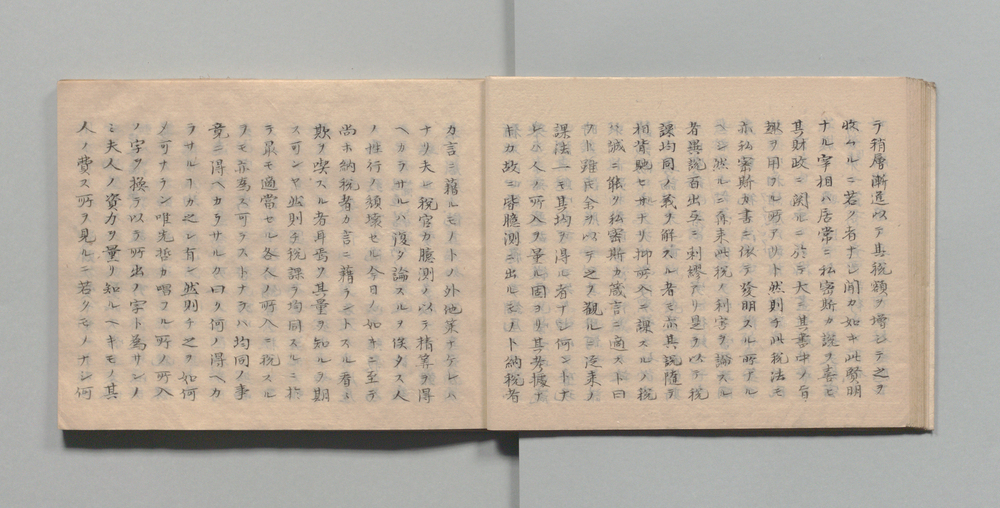 テ稍層漸進以テ其税額ヲ増シテ之ヲ
收ムルニ若ク者ナシ聞カ如キ此聡明
ナル宰相ハ居常ニ私密斯カ説ヲ喜ヒ
其財政ニ関ルニ於テ大ニ其書中ノ旨
趣ヲ用フル所アリト然則チ此税法モ
亦私密斯カ書ニ依テ發明スル所アル
ヘシ然ルニ爾来此税ノ利害ヲ論スル
者異説百出互ニ利繆アリ是ヲ以テ税
課均同ノ義ヲ解スル者モ亦其説随テ
相背馳セサルナリ抑所入ニ課スルノ税
誠ニ能ク私密斯カ箴言ニ適スト曰
フト雖氏余ヲ以テ之ヲ觀ルニ従来ノ
課法一モ其均ヲ得ル者ナシ何ントナ
レハ人ノ所入ヲ量ル固ヨリ其考據ナ
キカ故ニ皆臆測ニ出ルモノト納税者
カ言ニ藉ルモノトノ外他策ナケレハ
ナリ夫レ税官カ臆測ノ以テ精算ヲ得
ヘカラサルハ復タ論スルヲ俟タス人
ノ性行ノ頽壊セル今日ノ如キニ至テ
尚ホ納税者カ言ニ藉ラントスル者ハ
欺ヲ喫スル者耳焉ヲ其量ヲ知ルヲ期
ス可ンヤ然則チ税課ヲ均同スルニ於
テ最モ適當セル各人ノ所入ニ税スル
ヲモ亦為ス可ラストナラハ均同ノ事
竟ニ得ヘカラサルカ曰ク何ノ得ヘカ
ラサルヿカ之レ有ン然則チ之ヲ如何
メ可ナラン唯先哲カ唱フル所ノ所入
ノ字ヲ換ヘテ以テ所出ノ字ト為サンノ
ミ夫人ノ資力ヲ量リ知ルヘキモノ其
人ノ費ス所ヲ見ルニ若クモノナシ何